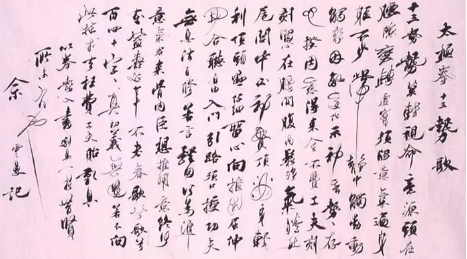 太極拳十三勢歌
十三勢勢莫輕視命意源頭在
腰隙變轉虛實須留意氣遍身
軀不少滯靜中觸動動
因敵變化示神奇勢勢存
心揆用意得來不費工夫刻
刻留心在腰間腹內鬆靜氣騰然
尾閭中正神貫頂滿身輕
利頂頭懸仔細留心向推求屈伸
開合聽自由入門引路須口授功夫
無息法自修若言體用何為準
意氣君來骨肉臣想推用意終何
在益壽延年不老春歌兮歌兮
百四十字真切義無遺若不向
此推求去枉費工夫貽歎息
以拳論入書
記